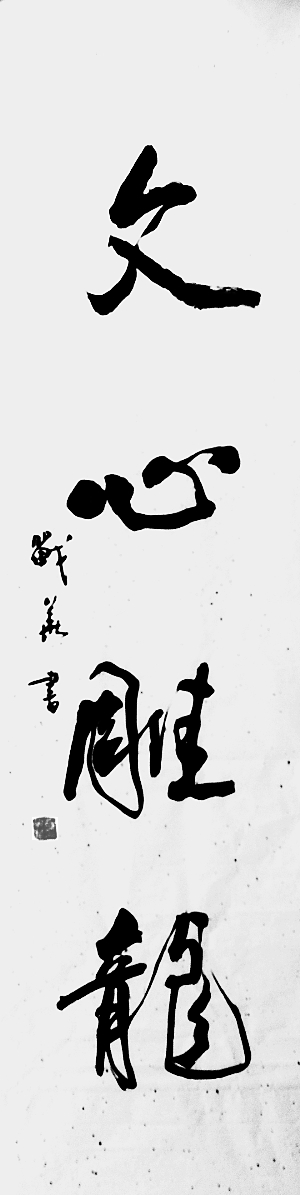 文心雕龍
戰義書